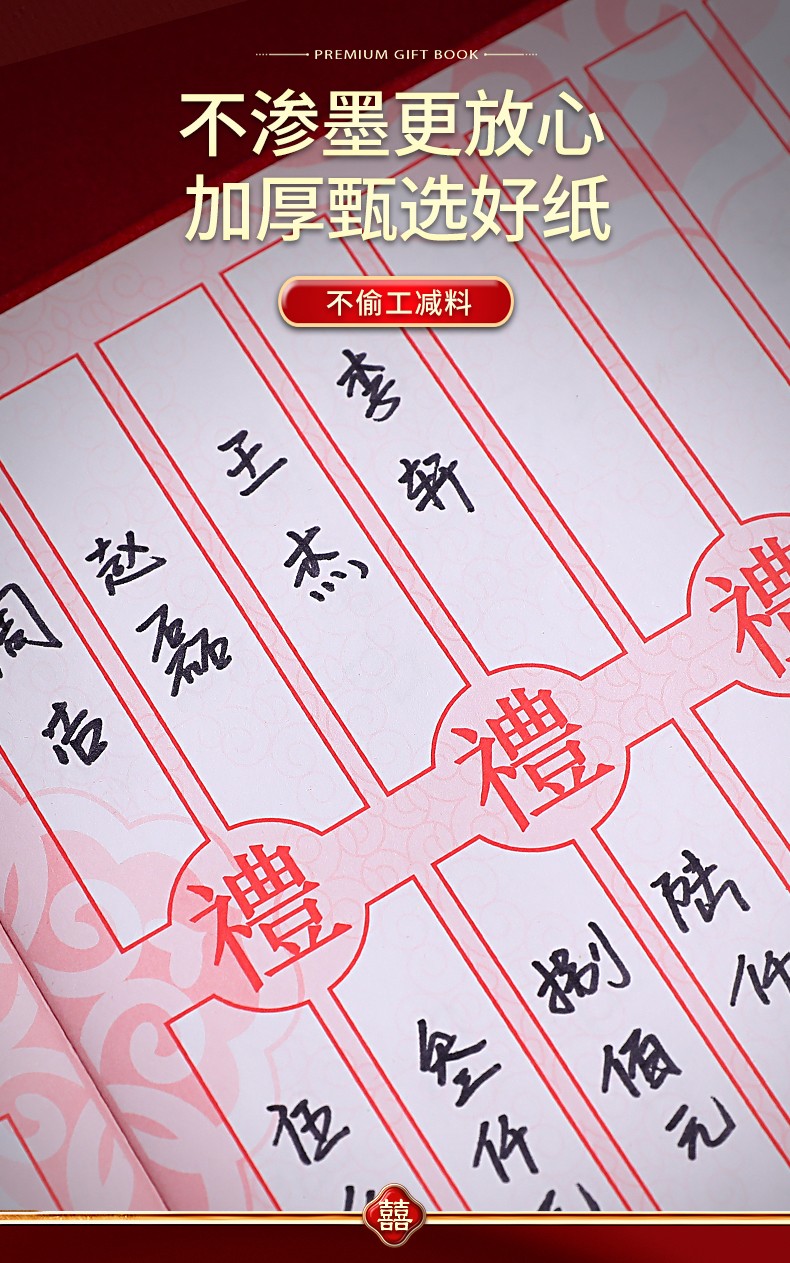 PREMIUM GIFT BOOK
不渗墨更放心
加厚甄选好纸
不偷工减料
李轩
王杰
赵磊
周浩
禮
禮
禮
陆仟
捌佰元
叁仟
伍
囍